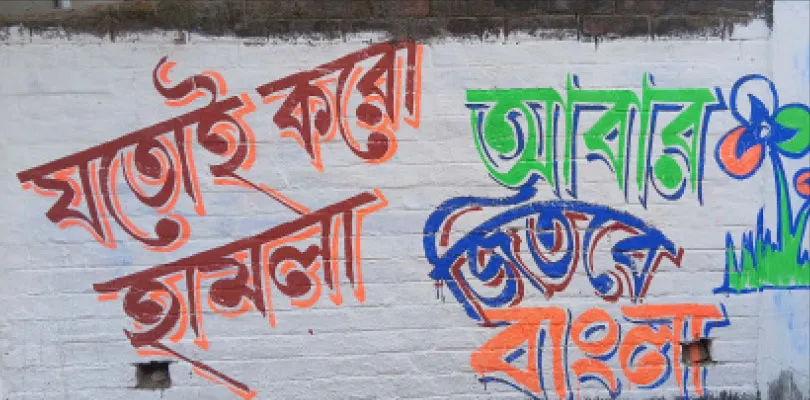 যতোই করো
হামলা
আবার
জিতবে
বাংলা